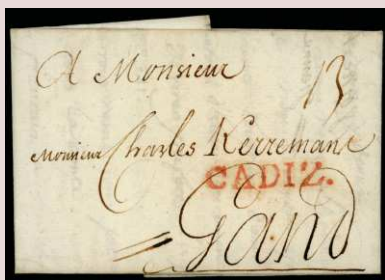 A Monsieur
13
Monsieur Charles Kerremans
CADIZ.
Gand